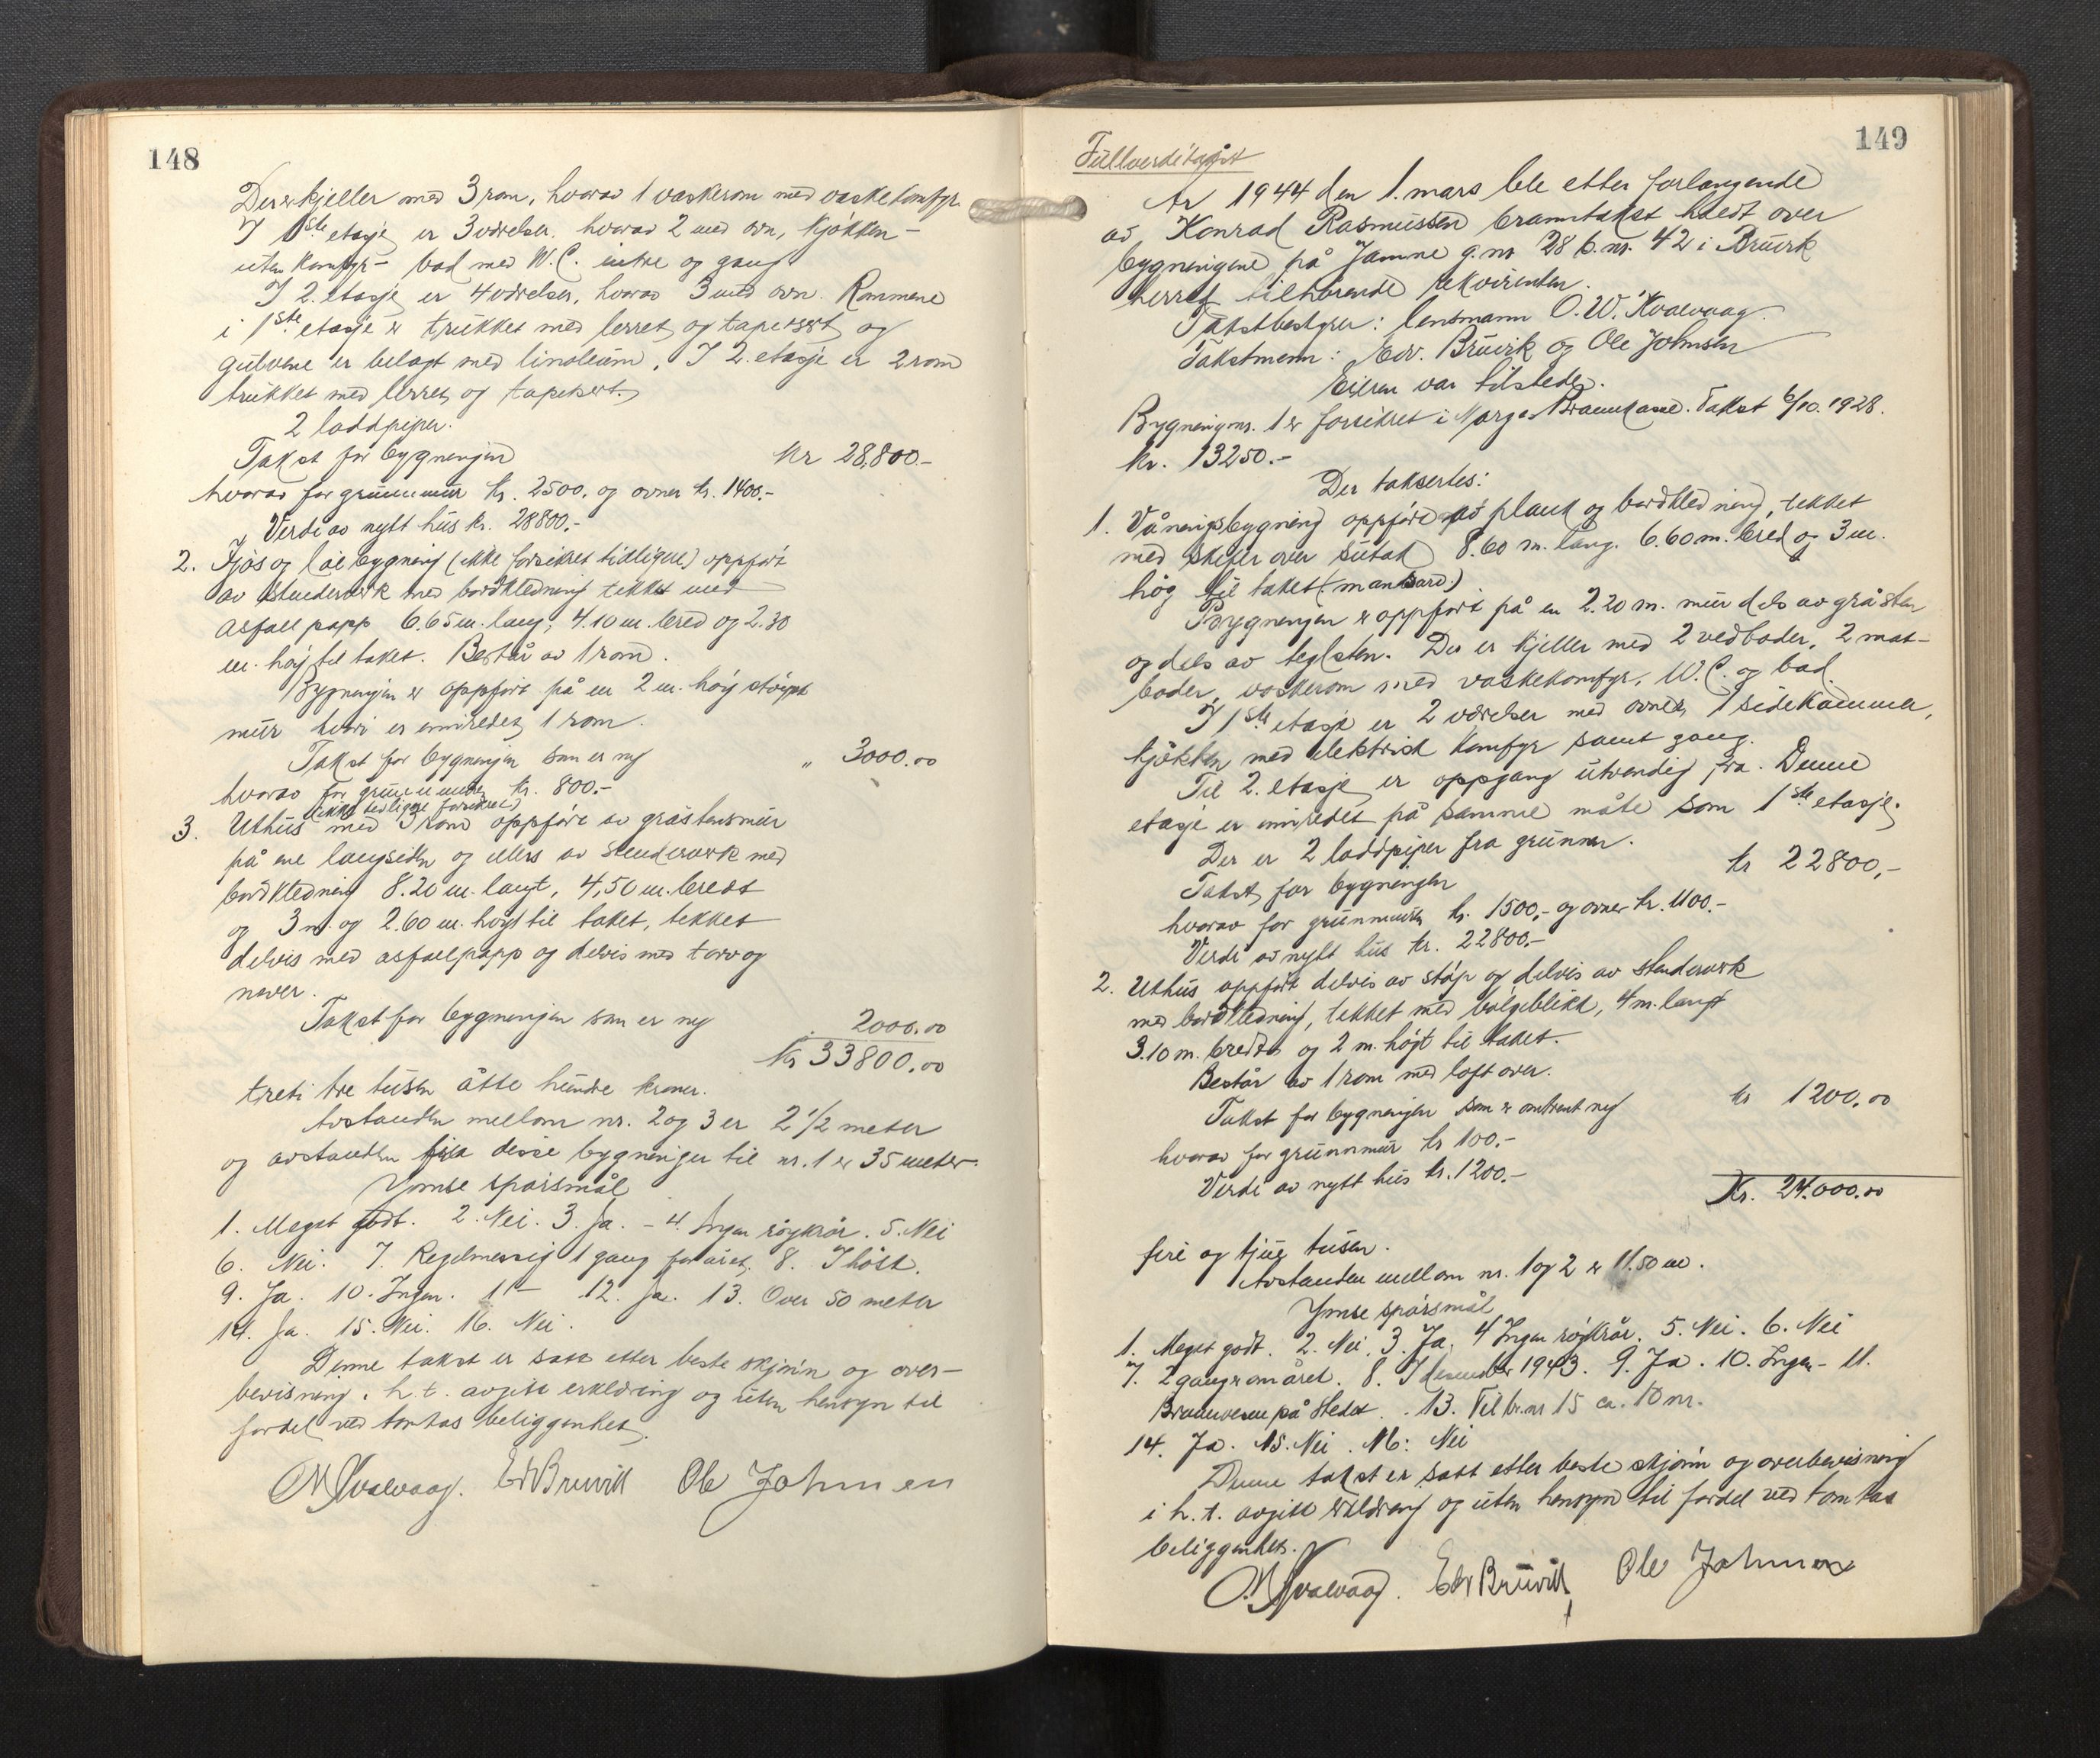 148
Der er kjeller med 3 rom, hvorav 1 vaskerom med vaskekomfyr.
I 1ste etasje er 3 værelser, hvorav 2 med ovn, kjøkken
uten komfyr - bad med W.C. indre og gang
I 2. etasje er 4 værelser, hvorav 3 med ovn. Rommene
i 1ste etasje er trukket med lerret og tapetsert og
gulvene er belagt med linoleum. I 2. etasje er 2 rom
trukket med lerret og tapetsert.
2 loddpiper.
Takst for bygningen Kr 28,800.-
hvorav for grunnmur kr. 2500. og ovner kr. 1400.-
Verdi av nytt hus kr. 28800.-
2. Fjøs og løebygning (ikke forsikret tidligere) oppført
av stenderverk med bordkledning tekket med
asfaltpapp 6.65 m. lang, 4.10 m. bred og 2.30
m. høg til taket. Består av 1 rom.
Bygningen er oppført på en 2 m. høg støypt
mur hvori er innredet 1 rom.
Takst for bygningen som er ny " 3000.00
hvorav for grunnmuren kr. 800.-
(ikke tidligere forsikret)
3. Uthus med 3 rom oppført av gråstensmur
på ene langsiden og ellers av stenderverk med
bordkledning 8.20 m. langt, 4,50 m. bredt
og 3 m. og 2.60 m. høgt til taket, tekket
delvis med asfaltpapp og delvis med torv og
never.
Takst for bygningen som er ny 2000.00
Kr 33800.00
treti tre tusen åtte hundre kroner.
Avstanden mellom nr. 2 og 3 er 2 1/2 meter
og avstanden fra disse bygninger til nr. 1 er 35 meter.
Ymse spørsmål
1. Meget godt. 2. Nei. 3. Ja. - 4. Ingen røykrør. 5. Nei
6. Nei. 7. Regelmessig 1 gang for året. 8. I høst.
9. Ja. 10. Ingen. 11 - 12. Ja. 13. Over 50 meter
14. Ja. 15. Nei. 16. Nei.
Denne takst er satt etter beste skjønn og over-
bevisning i h.t. avgitt erklæring og uten hensyn til
fordel ved tomtas beliggenhet.
O W Kvalvaag. Edv Bruvik Ole Johnsen
149
Fullverditakst
År 1944 den 1. mars ble etter forlangende
av Konrad Rasmussen branntakst holdt over
bygningene på Jamne g.nr 28 b.nr. 42 i Bruvik
herred tilhørende rekvirenten.
Takstbestyrer: lensmann O.W. Kvalvaag.
Takstmenn: Edv. Bruvik og Ole Johnsen
Eieren var tilstede.
Bygning nr. 1 er forsikret i Norges Brannkasse. Takst 6/10.1928.
kr. 13250.-
Der taksertes:
1. Våningsbygning oppført av plank og bordkledning, tekket
med skifer over sutak 8.60 m. lang. 6.60 m. bred og 3 m.
høg til taket (mansard.)
Bygningen er oppført på en 2.20 m. mur dels av gråsten
og dels av teglsten. Der er kjeller med 2 vedboder, 2 mat-
boder, vaskerom med vaskekomfyr, W.C. og bad.
I 1ste etasje er 2 værelser med ovner, 1 sidekammer,
kjøkken med elektrisk komfyr samt gang.
Til 2. etasje er oppgang utvendig fra. Denne
etasje er innredet på samme måte som 1ste etasje.
Der er 2 loddpiper fra grunnen.
Takst for bygningen kr 22800,-
hvorav for grunnmuren kr. 1500,- og ovner kr. 1100.-
Verdi av nytt hus kr. 22800.-
2. Uthus oppført delvis av støp og delvis av stenderverk
med bordkledning, tekket med bølgeblikk, 4 m. langt
3.10 m. bredt og 2 m. højt til taket.
Består av 1 rom med loft over.
Takst for bygningen som er omtrent ny kr 1200.00
hvorav for grunnmur kr 100.-
Verdi av nytt hus kr. 1200.-
Kr. 24.000.00
fire og tjue tusen.
Avstanden mellom nr. 1 og 2 er 11.50 m.
Ymse spørsmål
1. Meget godt. 2. Nei. 3. Ja. 4 Ingen røykrør. 5. Nei. 6. Nei
7. 2 ganger om året. 8. I desember 1943. 9. Ja. 10. Ingen - 11.
Brannvesen på stedet. 13. Til br.nr 15 ca. 10 m.
14. Ja. 15. Nei. 16: Nei
Denne takst er satt etter beste skjønn og overbevisning
i h.t. avgitt erklæring og uten hensyn til fordel ved tomtas
beliggenhet.
O W Kvalvaag. Edv Bruvik Ole Johnsen